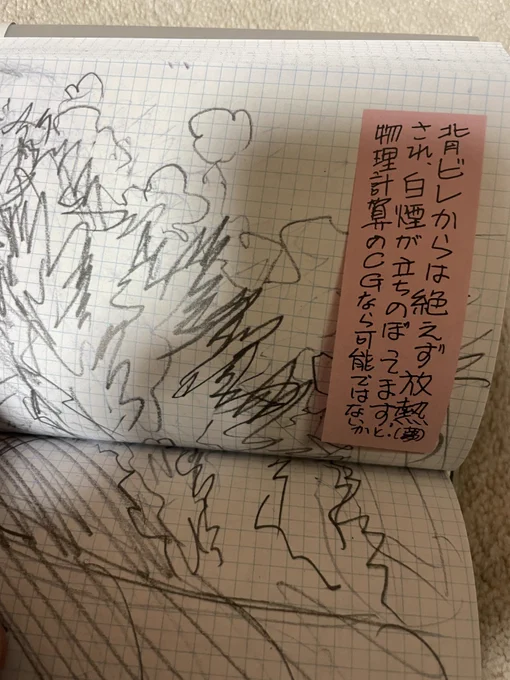 背ビレからは絶えず放熱
され、白煙が立ちのぼってます。
物理計算のCGなら可能ではないかと.